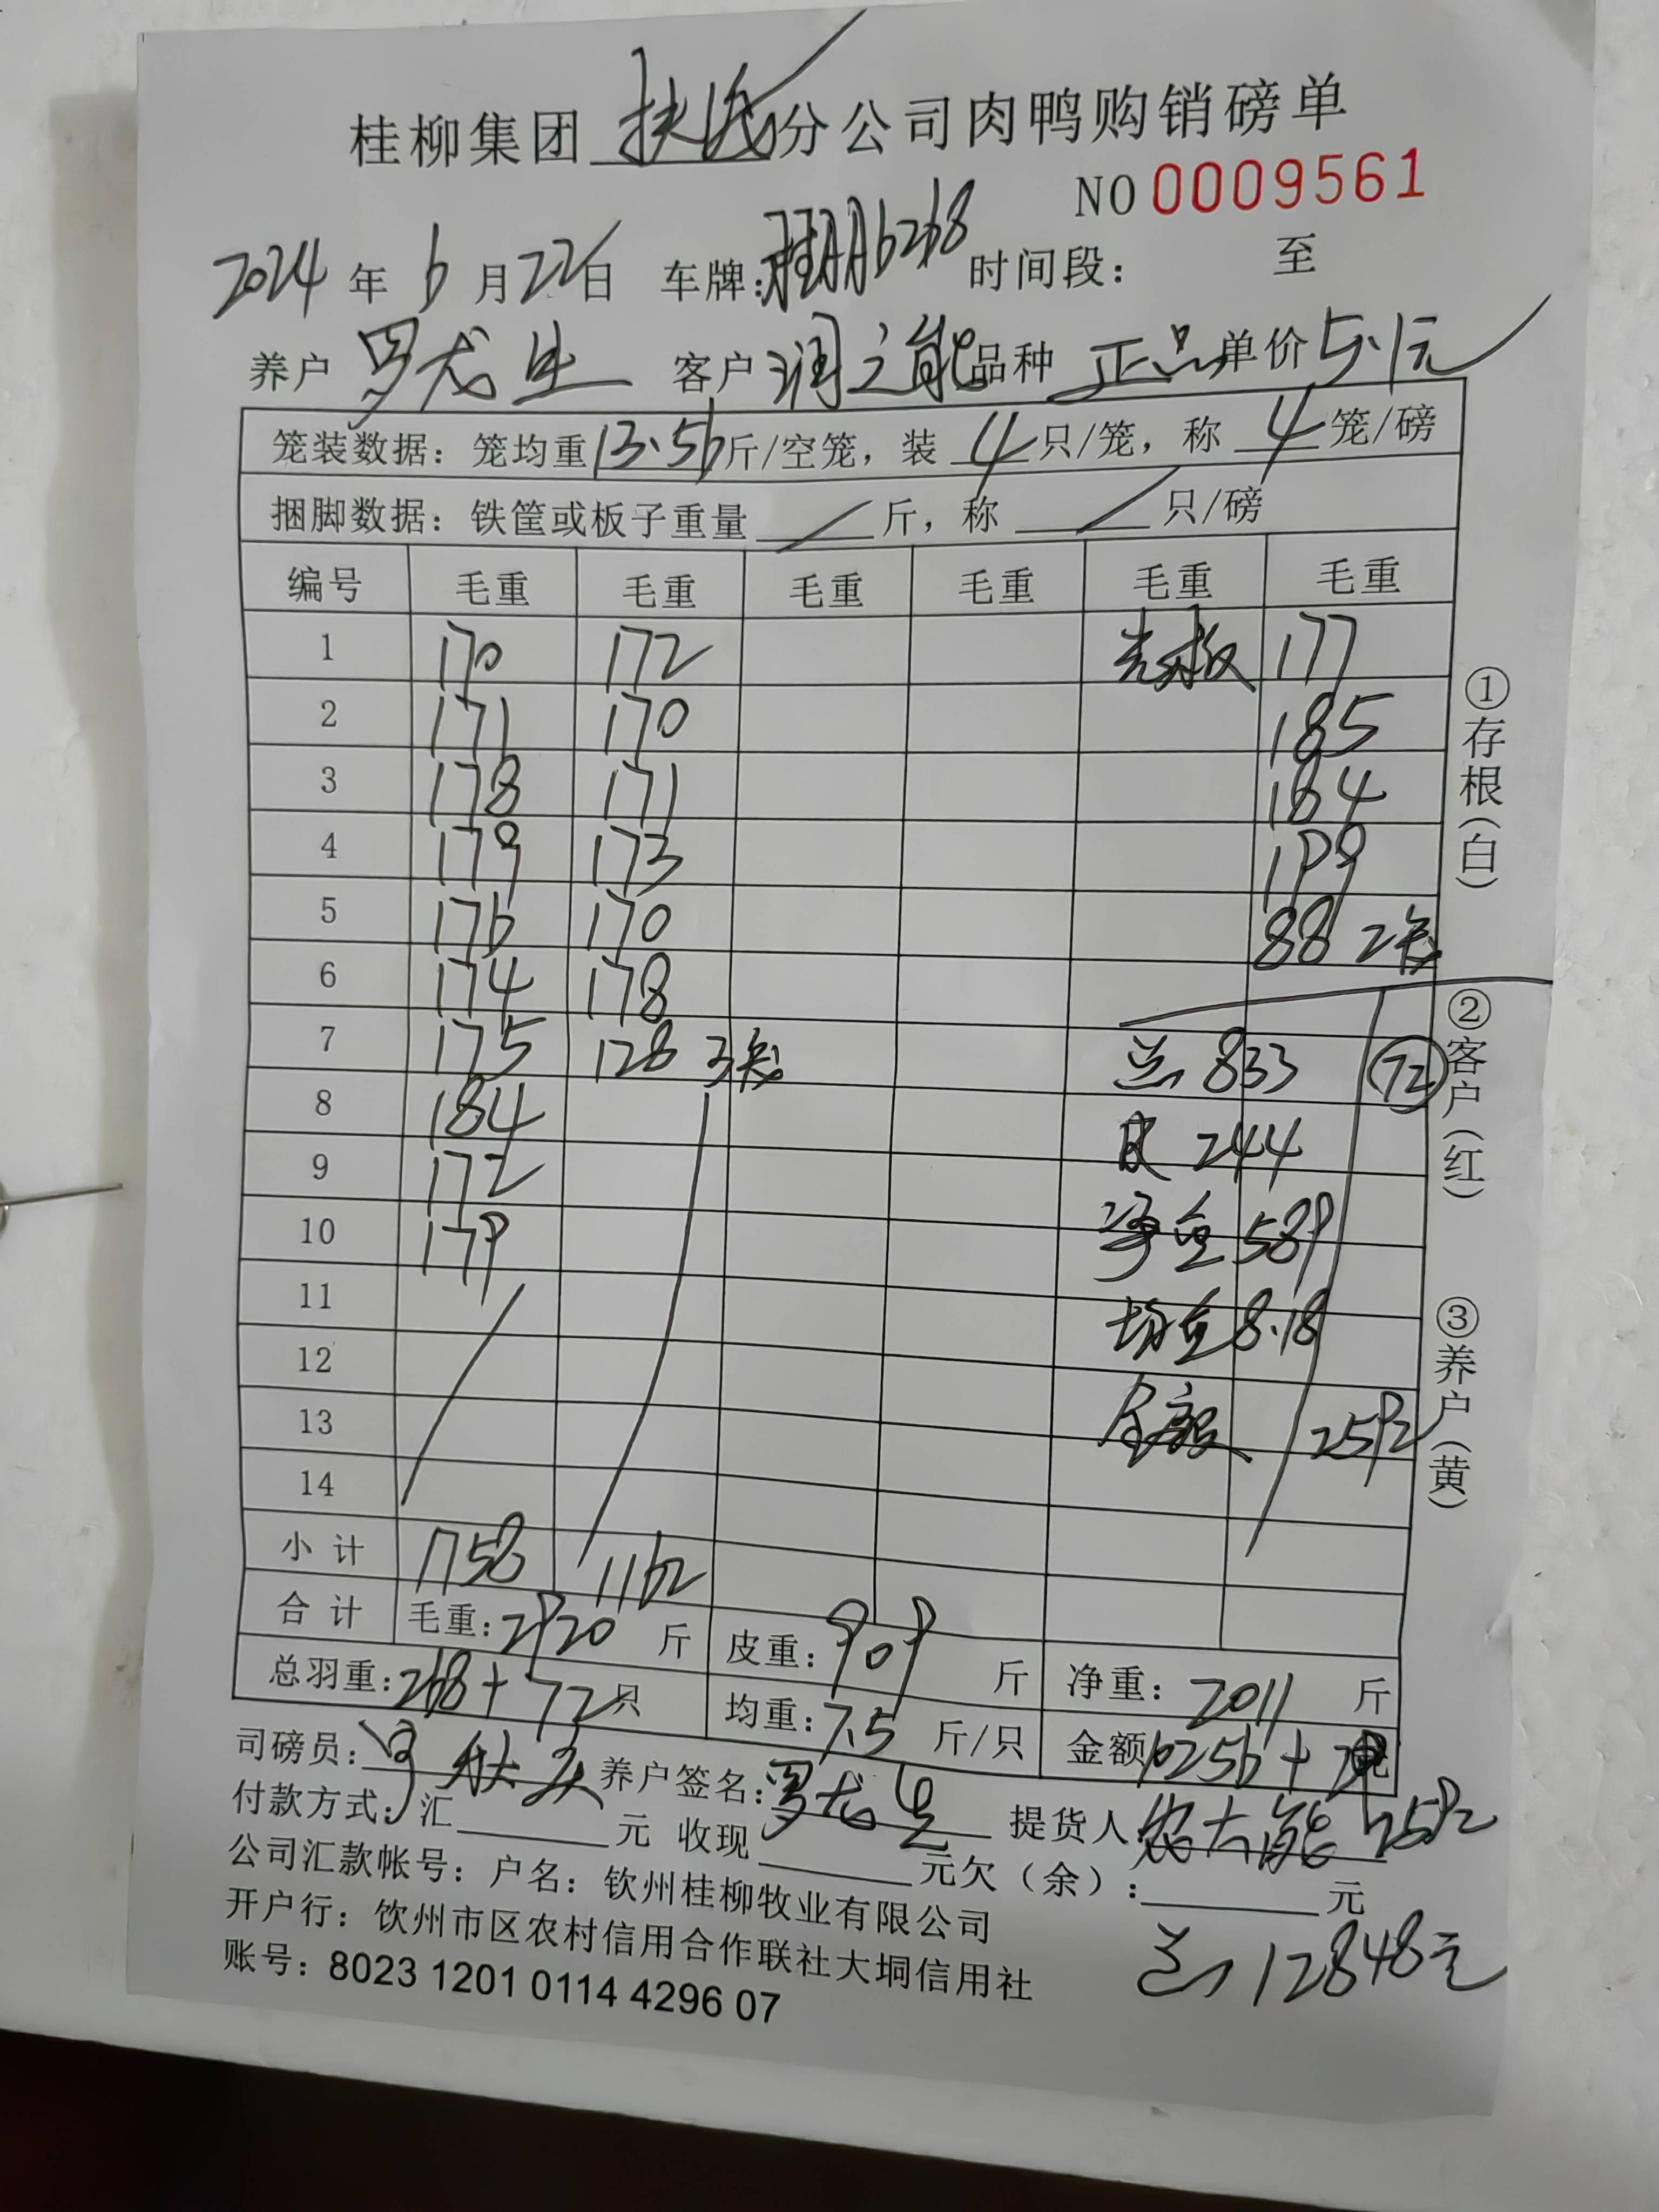 桂柳集团 扶绥 分公司肉鸭购销磅单
NO 0009561
2024 年 6 月 22 日 车牌: 6268 时间段: 至
养户 罗龙生 客户 润之能 品种 正品 单价 5.1元
笼装数据: 笼均重 13.56 斤/空笼, 装 4 只/笼, 称 4 笼/磅
捆脚数据: 铁筐或板子重量 / 斤, 称 / 只/磅
编号 毛重 毛重 毛重 毛重 毛重 毛重
1 170 172 177
2 171 170 185
3 178 171 184
4 179 173 199
5 176 170 88 2笼
6 174 178
7 175 128 3笼 总 833 72
8 184 皮 244
9 172 净重 589
10 179 均重 8.18
11
12 金额 2592
13
14
小计 1758 1162
合计 毛重: 2920 斤 皮重: 909 斤 净重: 2011 斤
总羽重: 268+72 只 均重: 7.5 斤/只 金额 10256+
司磅员: 养户签名: 罗龙生 提货人: 农大能 2592
付款方式: 汇 元 收现 元欠(余): 元
公司汇款帐号: 户名: 钦州桂柳牧业有限公司
开户行: 钦州市区农村信用合作联社大垌信用社
总 12848元
账号: 8023 1201 0114 4296 07
①存根(白)
②客户(红)
③养户(黄)